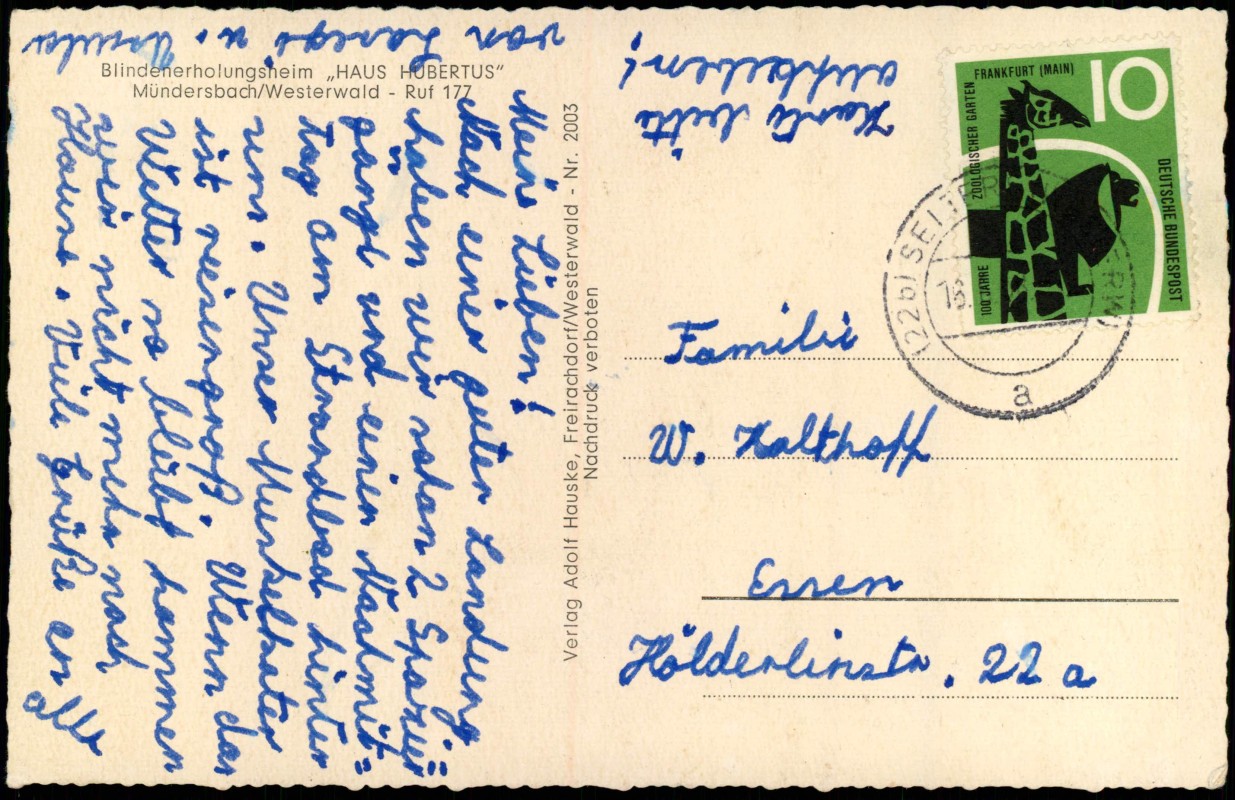 Blindenerholungsheim „HAUS HUBERTUS"
Mündersbach/Westerwald - Ruf 177
Meine Lieben!
Nach einer guter Landung
haben wir schon 2 Spazier=
gängl und einen Nachmit=
tag am Strandbad hinter
uns. Unser Muskelkater
ist riesengroß. Wenn das
Wetter so bleibt kommen
wir nicht mehr nach
Hause. Viele Grüße an
alle
von u. Ursula
Karte bitte
aufheben!
Verlag Adolf Hauske, Freirachdorf/Westerwald - Nr. 2003
Nachdruck verboten
100 JAHRE
ZOOLOGISCHER GARTEN
FRANKFURT (MAIN)
10
DEUTSCHE BUNDESPOST
(22b) SELTERS
a
Familie
W. Kalthoff
Essen
Hölderlinstr. 22 a